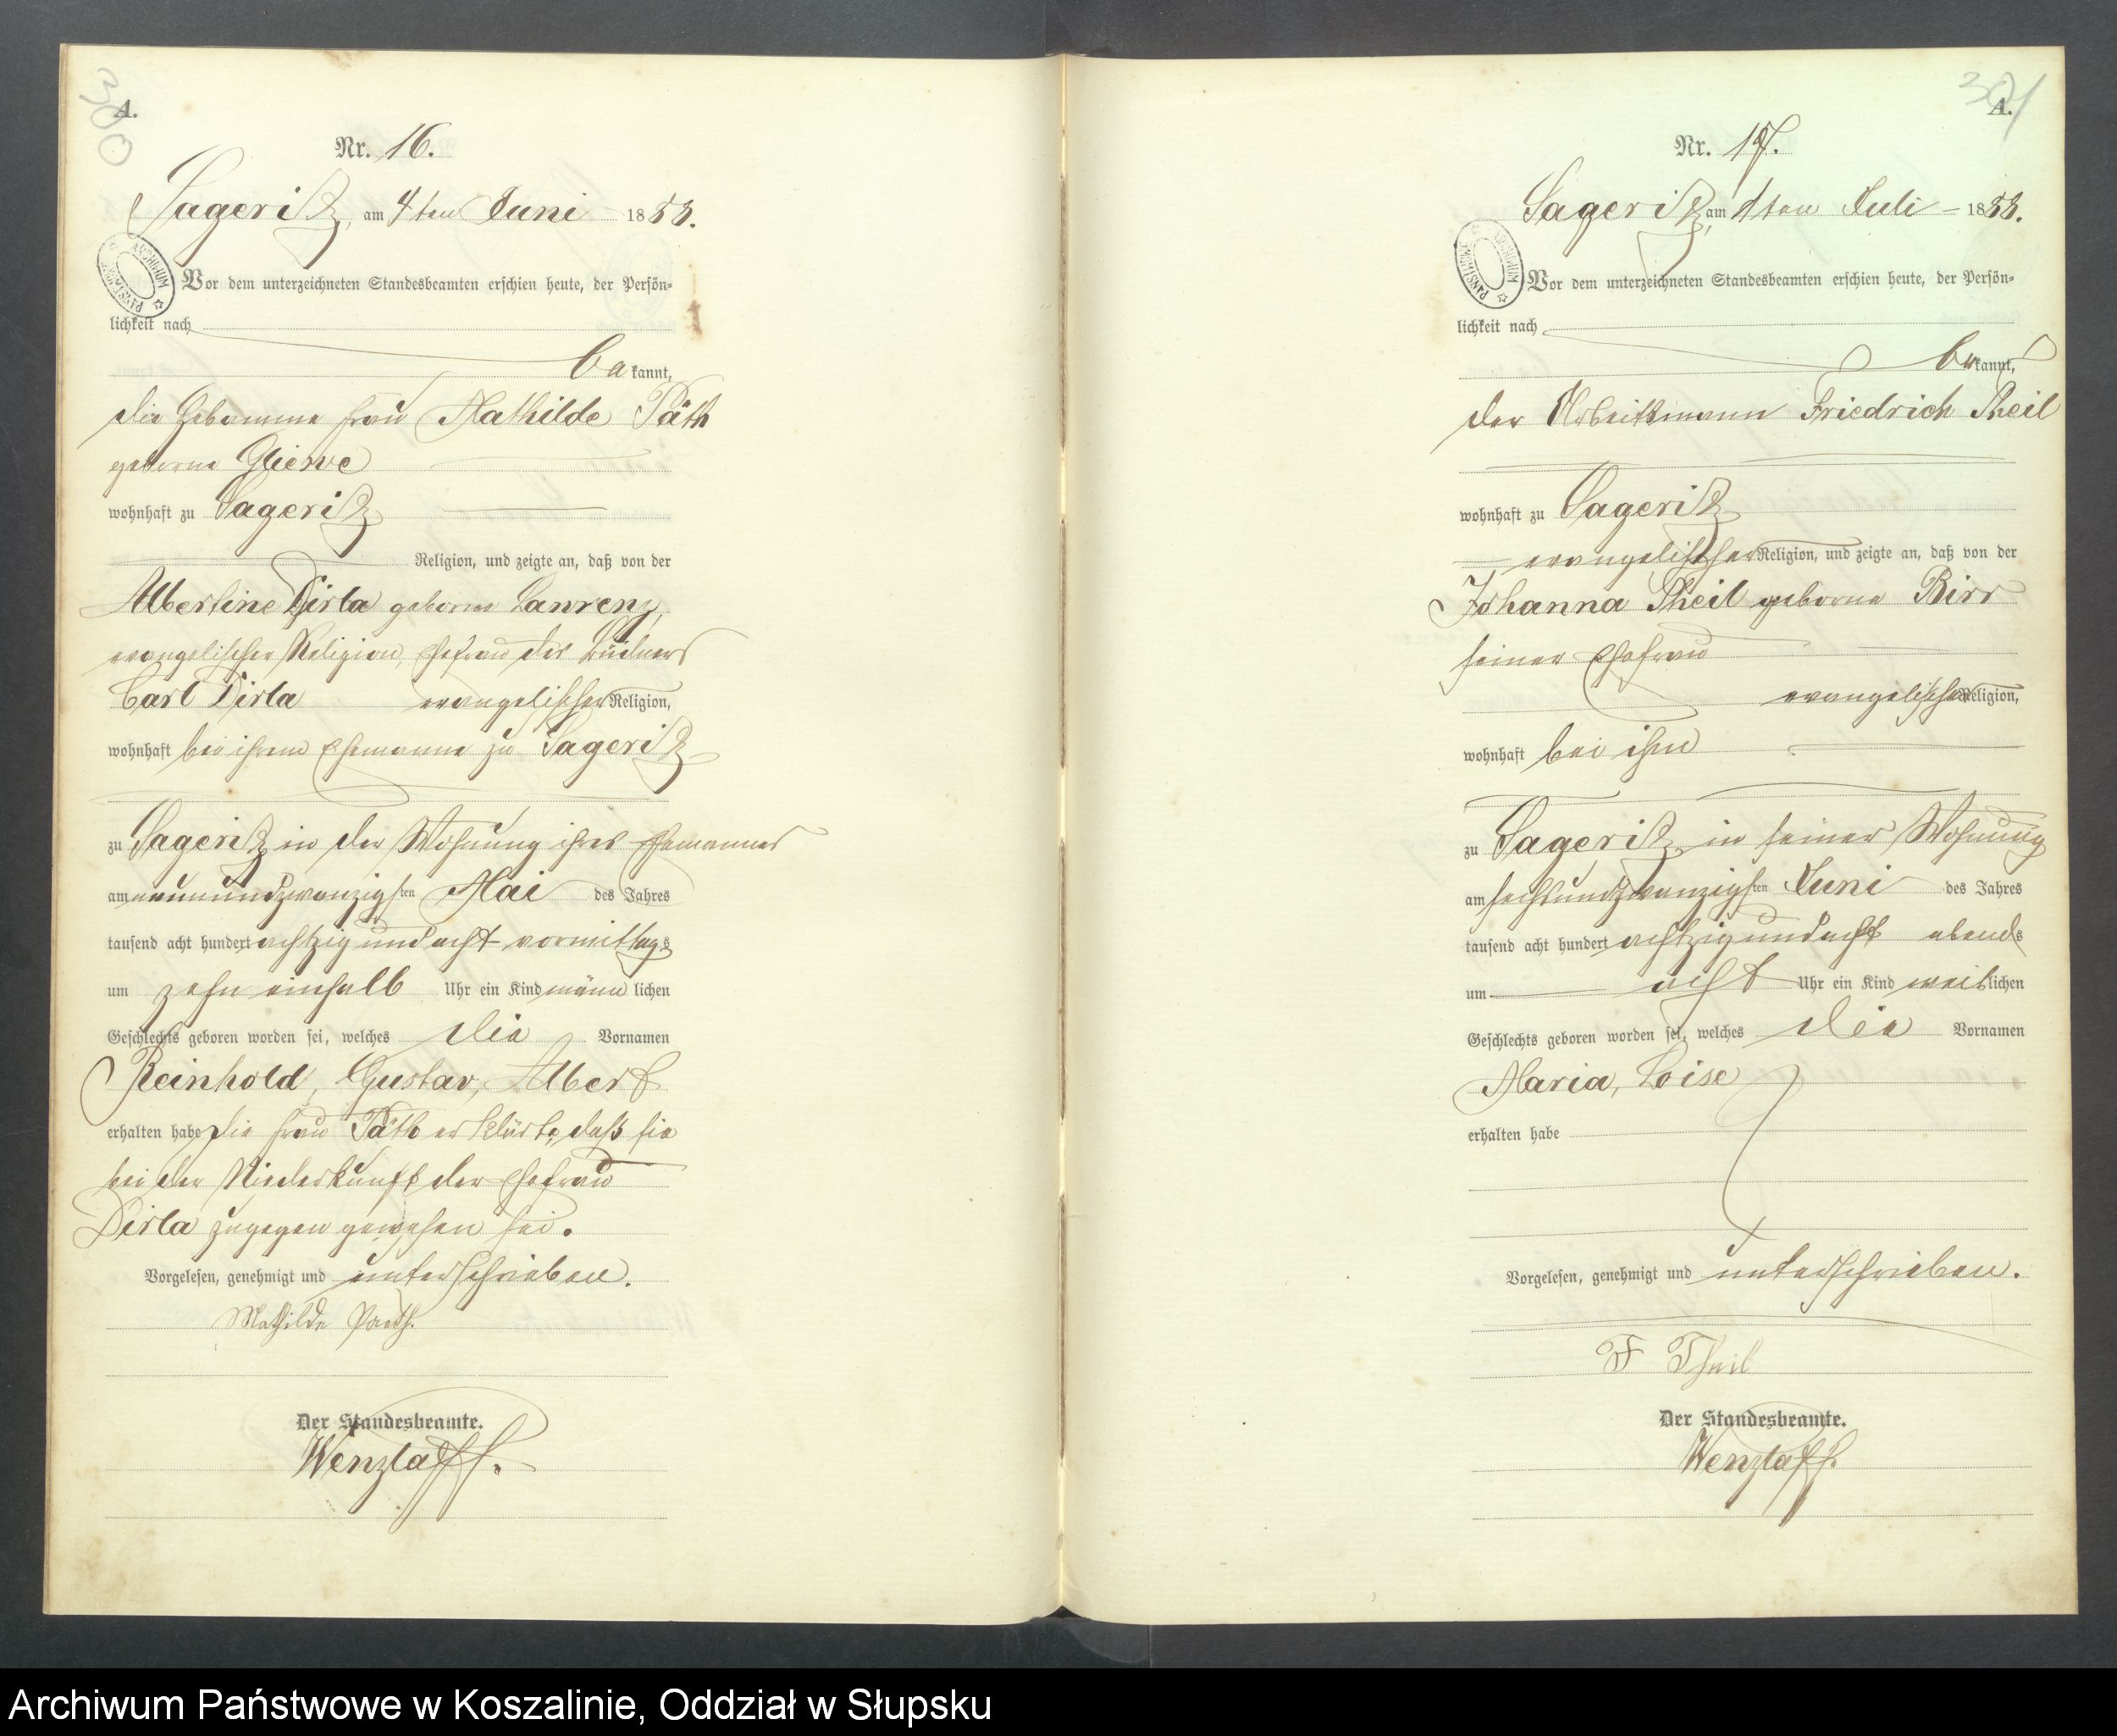 300
A.
Nr. 16.
Sageritz, am 4ten Juni 1888.
ARCHIWUM PAŃSTWOWE
Vor dem unterzeichneten Standesbeamten erschien heute, der Persön-
lichkeit nach
be kannt,
die Hebamme Frau Mathilde Päth
geborne Gliewe
wohnhaft zu Sageritz
Religion, und zeigte an, daß von der
Albertine Dirla geborne Lawrenz,
evangelischer Religion, Ehefrau des Büdners
Carl Dirla evangelischer Religion,
wohnhaft bei ihrem Ehemanne zu Sageritz
zu Sageritz in der Wohnung ihres Ehemannes
am neunundzwanzigsten Mai des Jahres
tausend acht hundert achtzig und acht vormittags
um zehn einhalb Uhr ein Kind männlichen
Geschlechts geboren worden sei, welches die Vornamen
Reinhold, Gustav, Albert
erhalten habe Die Frau Päth erklärte, daß sie
bei der Niederkunft der Ehefrau
Dirla zugegen gewesen sei.
Vorgelesen, genehmigt und unterschrieben.
Mathilde Paeth.
Der Standesbeamte.
Wenzlaff.
301
A.
Nr. 17.
Sageritz, am 1ten Juli 1888.
ARCHIWUM PAŃSTWOWE
Vor dem unterzeichneten Standesbeamten erschien heute, der Persön-
lichkeit nach
be kannt,
der Arbeitsmann Friedrich Theil
wohnhaft zu Sageritz
evangelischer Religion, und zeigte an, daß von der
Johanna Theil geborne Birr
seiner Ehefrau
evangelischer Religion,
wohnhaft bei ihm
zu Sageritz in seiner Wohnung
am sechsundzwanzigsten Juni des Jahres
tausend acht hundert achtzig und acht abends
um acht Uhr ein Kind weiblichen
Geschlechts geboren worden sei, welches die Vornamen
Maria, Loise
erhalten habe
Vorgelesen, genehmigt und unterschrieben.
F Theil
Der Standesbeamte.
Wenzlaff.
Archiwum Państwowe w Koszalinie, Oddział w Słupsku